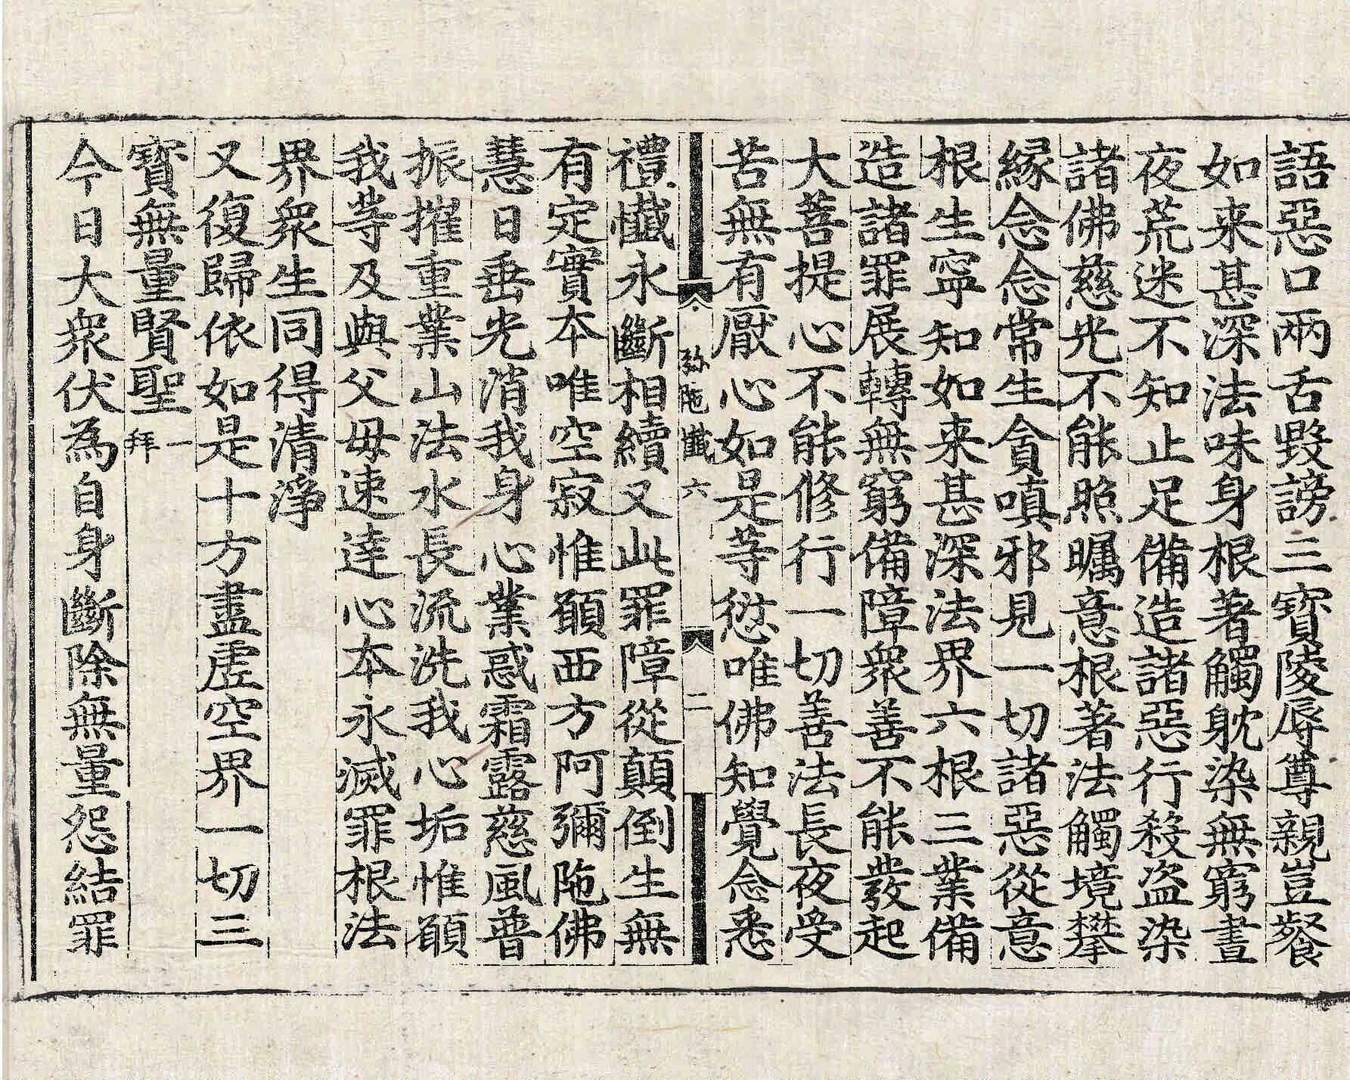 語惡口兩舌毀謗三寶陵辱尊親豈餐
如来甚深法味身根著觸躭染無窮晝
夜荒迷不知止足備造諸惡行殺盗染
諸佛慈光不能照矚意根著法觸境攀
緣念念常生貪嗔邪見一切諸惡從意
根生寧知如来甚深法界六根三業備
造諸罪展轉無窮備障衆善不能發起
大菩提心不能修行一切善法長夜受
苦無有厭心如是等愆唯佛知覺念悉
弥陁懺六 二
禮懺永斷相續又此罪障從顛倒生無
有定實本唯空寂惟願西方阿彌陁佛
慧日垂光消我身心業惑霜露慈風普
振摧重業山法水長流洗我心垢惟願
我等及與父母速達心本永滅罪根法
界衆生同得清淨
又復歸依如是十方盡虛空界一切三
寳無量賢聖一拜
今日大衆伏為自身斷除無量怨結罪